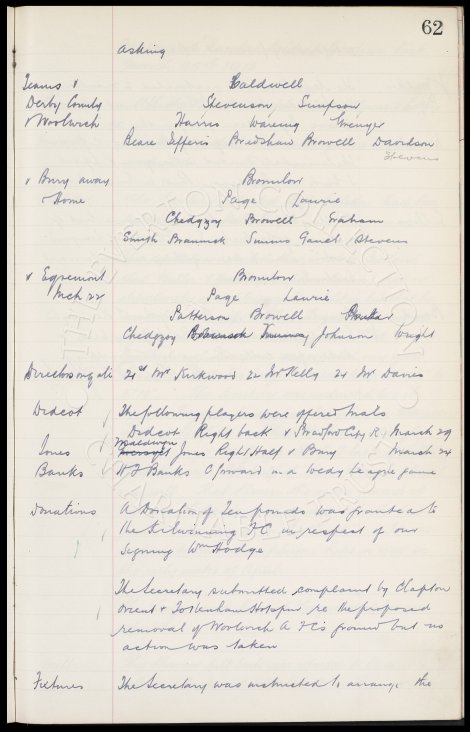 62
asking
Teams v Caldwell
Derby County Stevenson Simpson
v Woolwich Harris Wareing Grenyer
Beare Jefferis Bradshaw Browell Davidson
Stevens
v Bury away Bromilow
Home Page Laurie
Chedgzoy Browell Graham
Smith Brannick Simms Gault / Stevens
v Egremont Bromilow
Mch 22 Page Laurie
Patterson Browell
Chedgzoy Brannick Johnson Wright
Directors Mr Kirkwood 22 Mr Kelly 24 Mr Davies
Didcot The following players were offered trials
Didcot Right back v Bradford City R. March 29
Maldwyn
Jones Jones Right Half v Bury March 24
Banks W J Banks C forward in a Wedy League game
Donations A Donation of Ten pounds was granted to
the Kilwinning FC in respect of our
signing Wm Hodge
The Secretary submitted complaint by Clapton
Orient & Tottenham Hotspur re the proposed
removal of Woolwich A FC's ground but no
action was taken
Fixtures The Secretary was instructed to arrange the
THE EVERTON COLLECTION
CHARITABLE TRUST